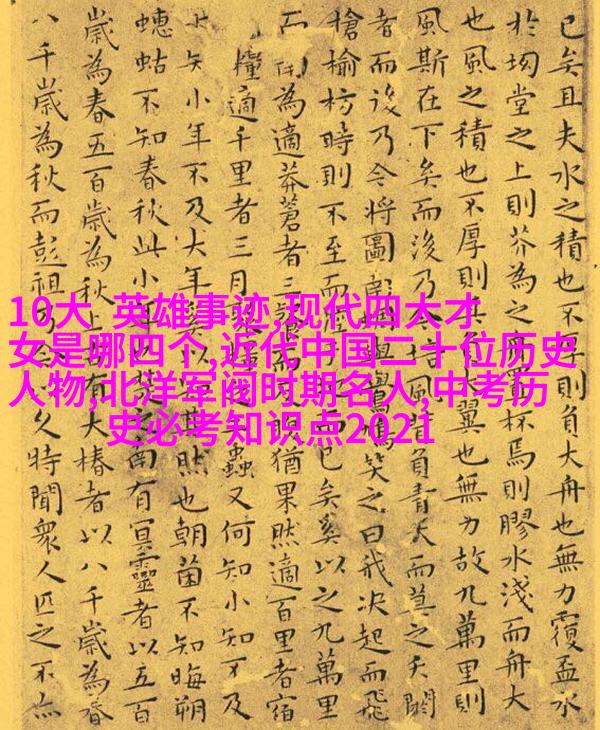 10大 英雄事迹,现代四大才
女是哪四个,近代中国二十位历史
人物,北洋军阀时期名人,中考历
史必考知识点2021
已矣且夫水之積也不厚則負大舟也無力覆盃水
於坳堂之上則芥為杯焉則膠水淺而舟大
也風之積也不厚則其大翼也無力故九萬里則
風斯在下矣而後乃今培風背負青天而莫之夭閼
者而後乃今將圖南鳩笑之曰我決起而飛
槍榆枋時則不至而已矣奚以之九萬里
而南為適莽蒼者三猶果然適百里者宿
糧適千里者三月蟲又何知小知不及
小年不及大年奚以其然也朝菌不知晦朔
蟪蛄不知春秋此小年楚之南有冥靈者以五百
歲為春五百歲為秋有大椿者以八千歲為春
八千歲為秋而彭祖乃今久特聞衆人匹之不亦